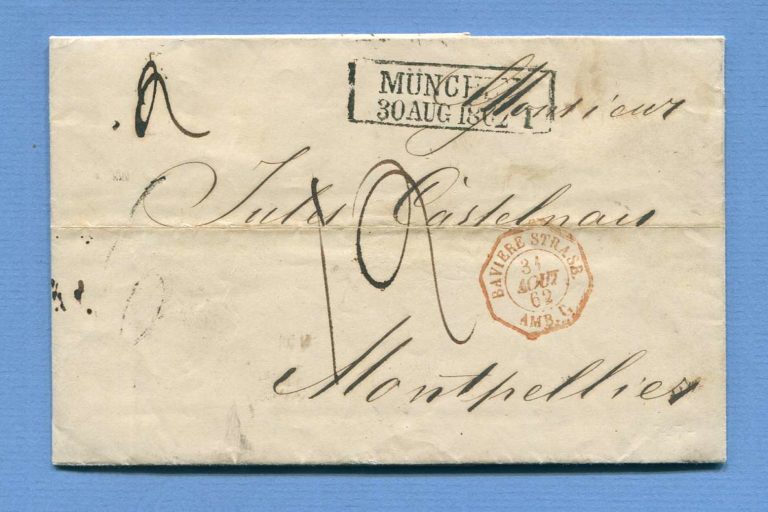 MÜNCHEN
30 AUG 1862 I
Monsieur
Jules Castelnau
12
BAVIERE STRASB.
31
AOUT
62
AMB.
Montpellier